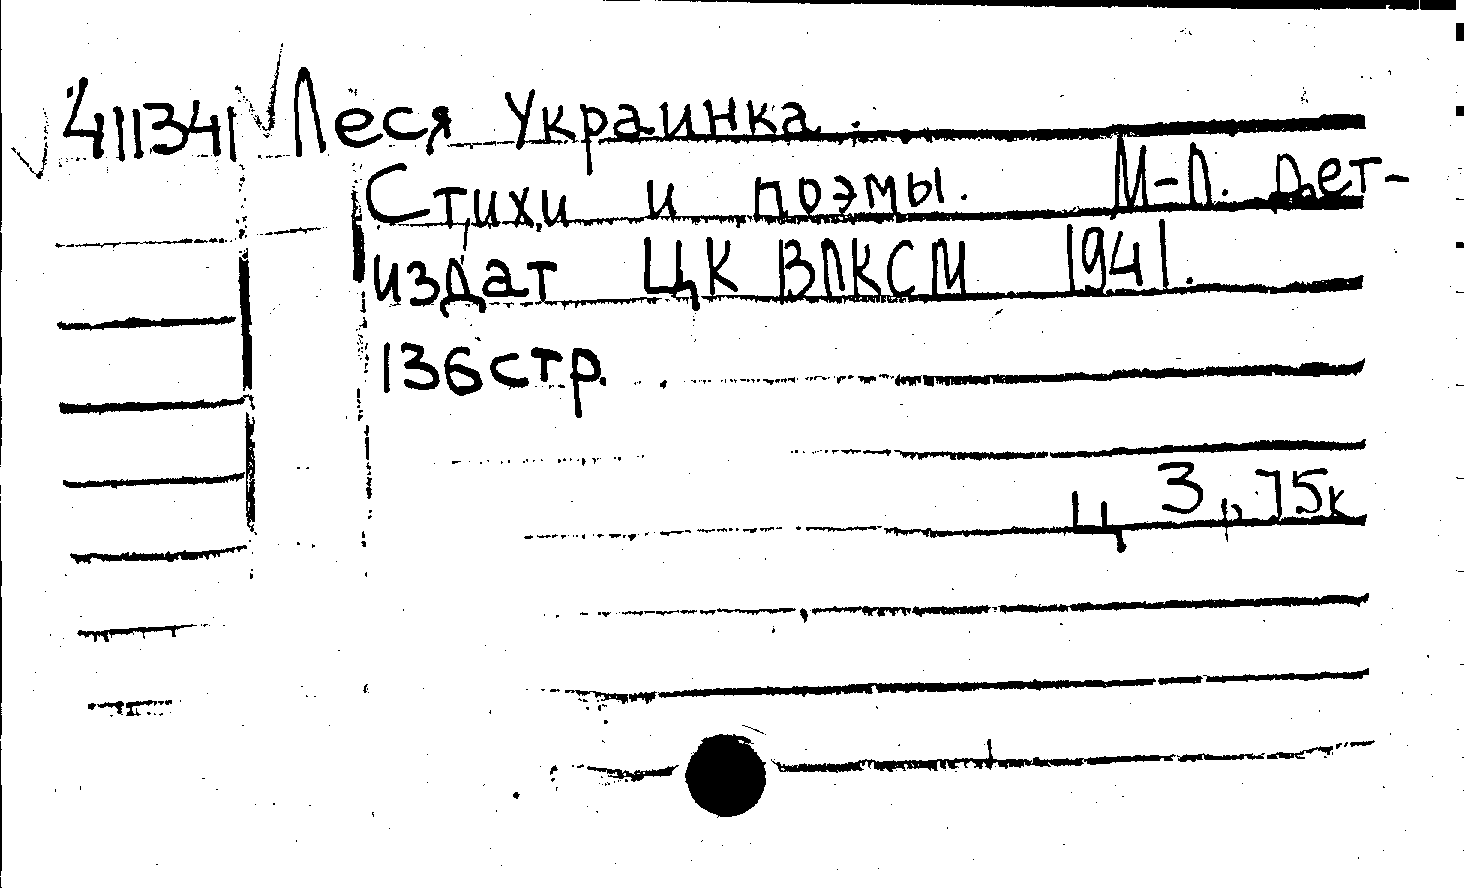 411341 Леся Украинка.
Стихи и поэмы. М-Л. Дет-
издат ЦК ВЛКСМ 1941.
136 стр.
Ц 3 р. 75к